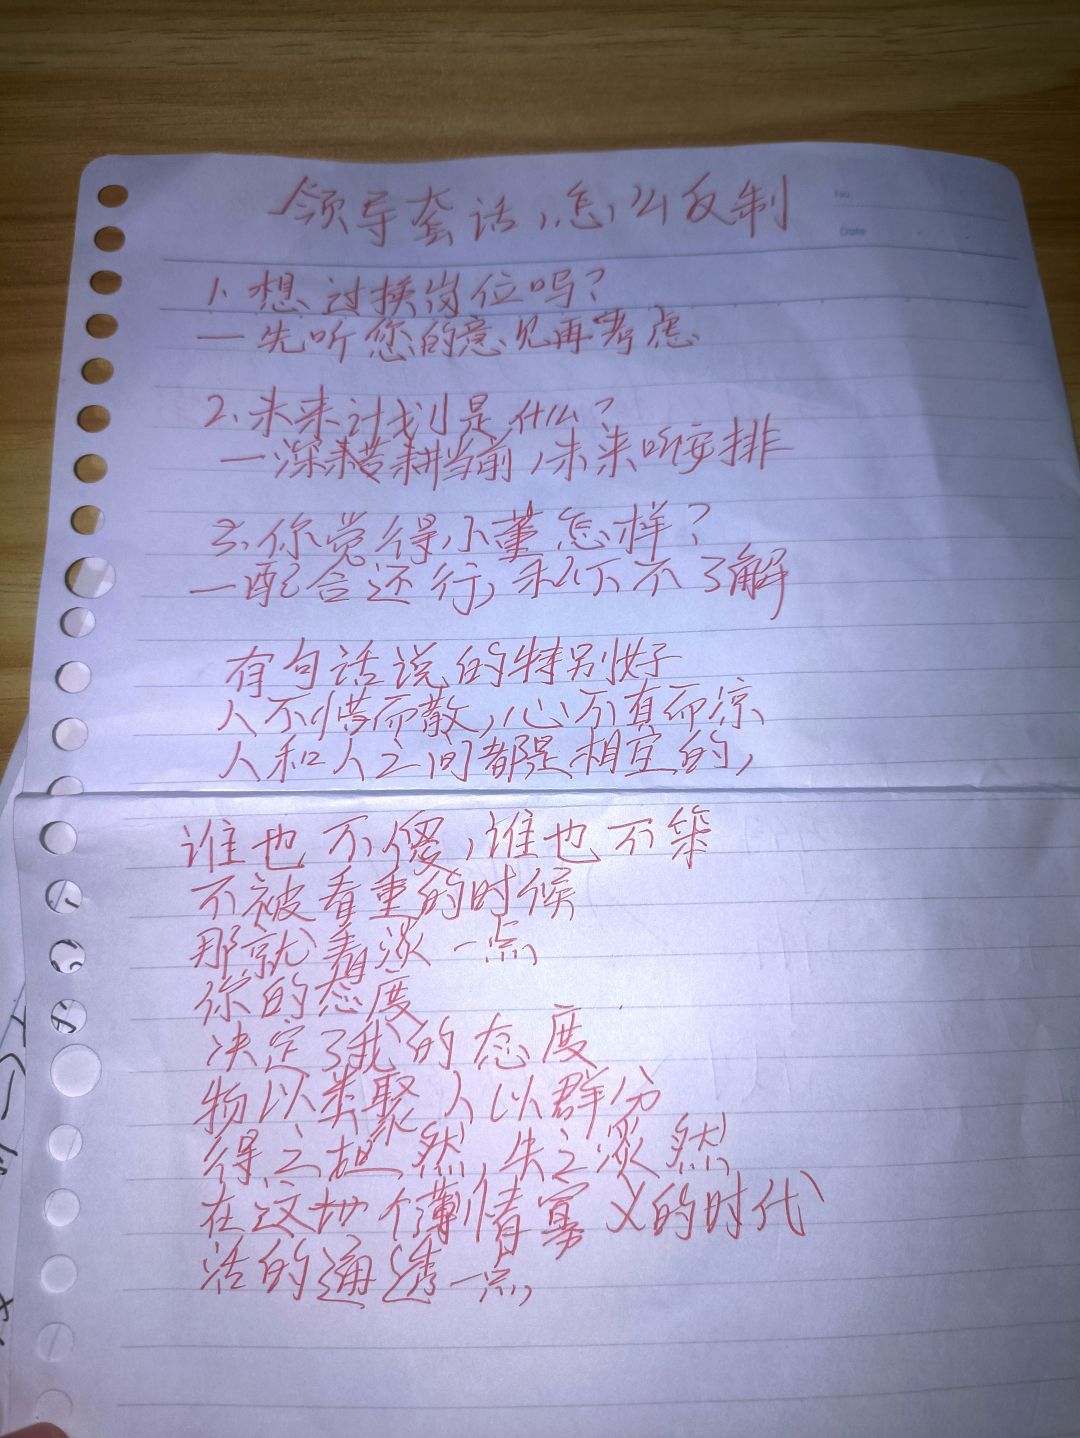 领导套话，怎么反制
No.
Date
1、想过换岗位吗？
一先听您的意见再考虑
2、未来计划是什么？
一深耕当前，未来听安排
3、你觉得小董怎样？
一配合还行，私下不了解
有句话说的特别好
人不惜而散，心不真而凉
人和人之间都是相互的，
谁也不傻，谁也不笨
不被看重的时候
那就看淡一点
你的态度
决定了我的态度
物以类聚人以群分
得之坦然，失之淡然
在这个薄情寡义的时代
活的通透一点